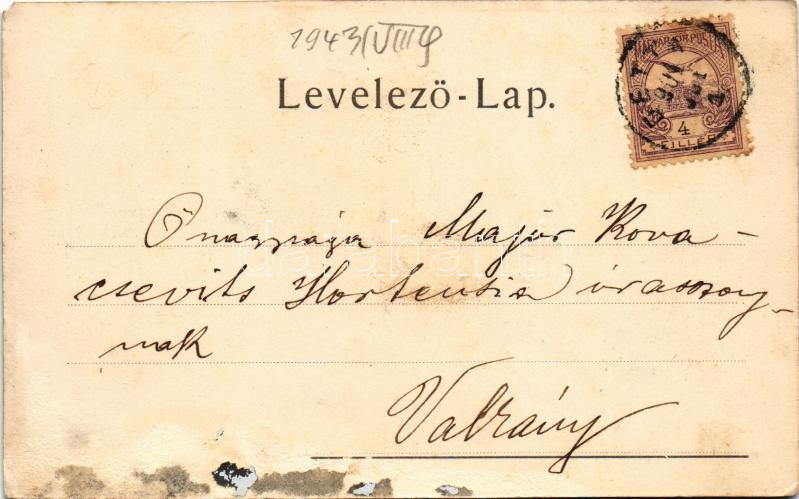 1943/VIII/9
Levelező-Lap.
MAGYAR KIR. POSTA
4
FILLÉR
Őnagysága Major Kova-
csevits Hortensia úrasszony-
nak
Valkány
darabanth